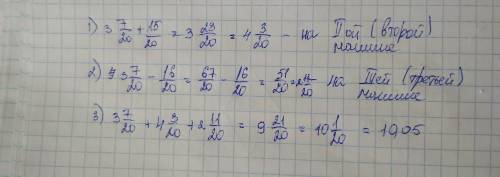 1) 3 7/20 + 15/20 = 3 23/20 = 4 3/20 - на IIой (второй)
машине
2) 3 7/20 - 16/20 = 67/20 - 16/20 = 51/20 = 2 11/20 на IIIей (третьей)
машине
3) 3 7/20 + 4 3/20 + 2 11/20 = 9 21/20 = 10 1/20 = 10,05